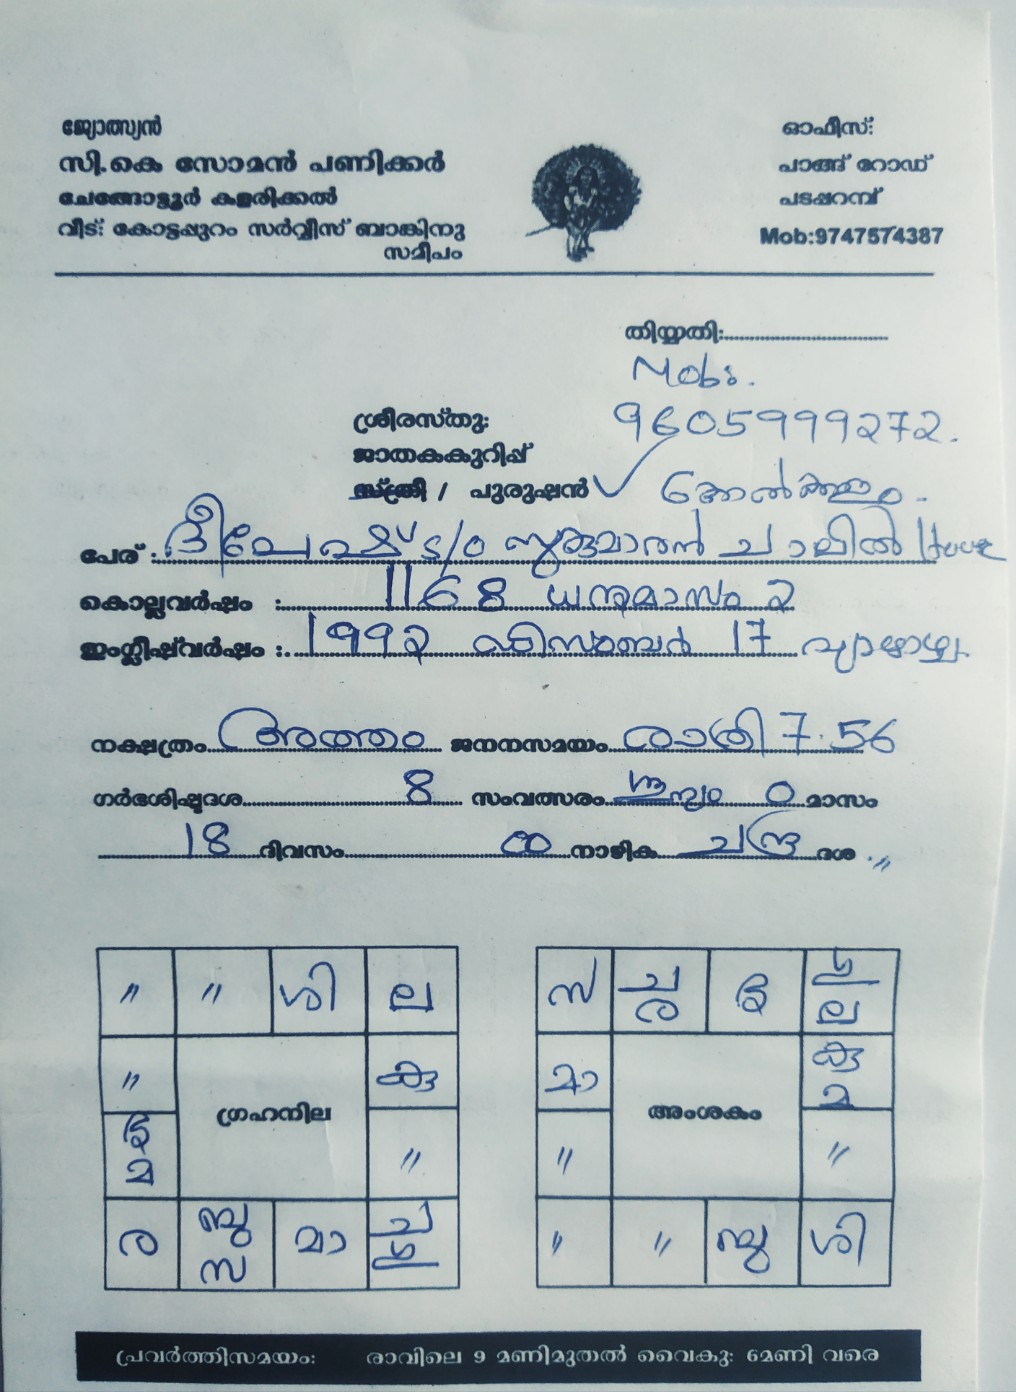 ജ്യോത്സ്യൻ
സി.കെ സോമൻ പണിക്കർ
ചേങ്ങോട്ടൂർ കളരിക്കൽ
വീട്: കോട്ടപ്പുറം സർവ്വീസ് ബാങ്കിനു
സമീപം
ഓഫീസ്:
പാങ്ങ് റോഡ്
പടപ്പറമ്പ്
Mob:9747574387
തിയ്യതി:
Mob:
9605999272.
ശ്രീരസ്തു:
ജാതകകുറിപ്പ്
സ്ത്രീ / പുരുഷൻ ✓
പേര് : S/o സുകുമാരൻ ചാലിൽ House
കൊല്ലവർഷം : 1168 ധനുമാസം 2
ഇംഗ്ലീഷ്‌വർഷം : 1992 ഡിസംബർ 17 വ്യാഴാഴ്ച
നക്ഷത്രം അത്തം ജനനസമയം രാത്രി 7.56
ഗർഭശിഷ്ടദശ 8 സംവത്സരം ശൂന്യം 0 മാസം
18 ദിവസം നാഴിക ചന്ദ്ര ദശ "
" " ശി ല
" കു
ഗ്രഹനില
മ "
ര ബു സ മാ ച
സ ച ര ല
മാ കു മ
അംശകം
" "
" " ബു ശി
പ്രവർത്തിസമയം: രാവിലെ 9 മണിമുതൽ വൈകു: 6മണി വരെ